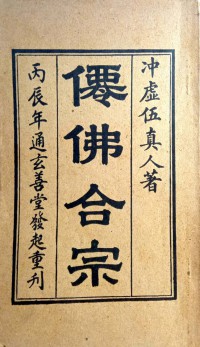 冲虛伍真人著
僊佛合宗
丙辰年通玄善堂發起重刋